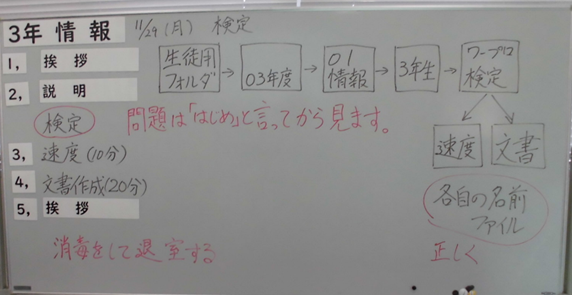 3年 情報
11/29(月) 検定
1, 挨拶
2, 説明
検定
3, 速度(10分)
4, 文書作成(20分)
5, 挨拶
消毒をして退室する
生徒用
フォルダ
→
03年度
→
01
情報
→
3年生
→
ワープロ
検定
問題は「はじめ」と言ってから見ます。
速度
文書
各自の名前
ファイル
正しく